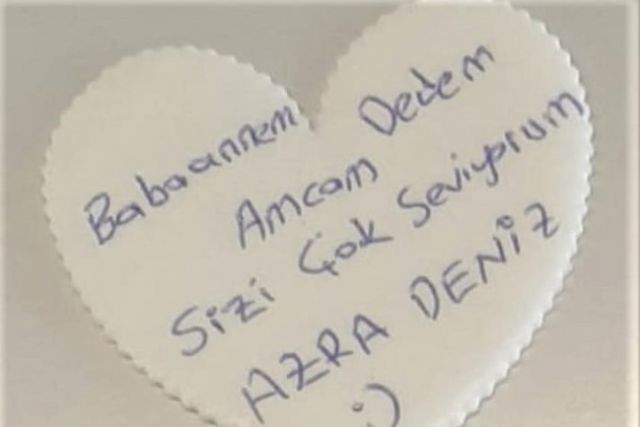 Babaannem Dedem
Amcam
Sizi Çok Seviyorum
AZRA DENİZ
:)